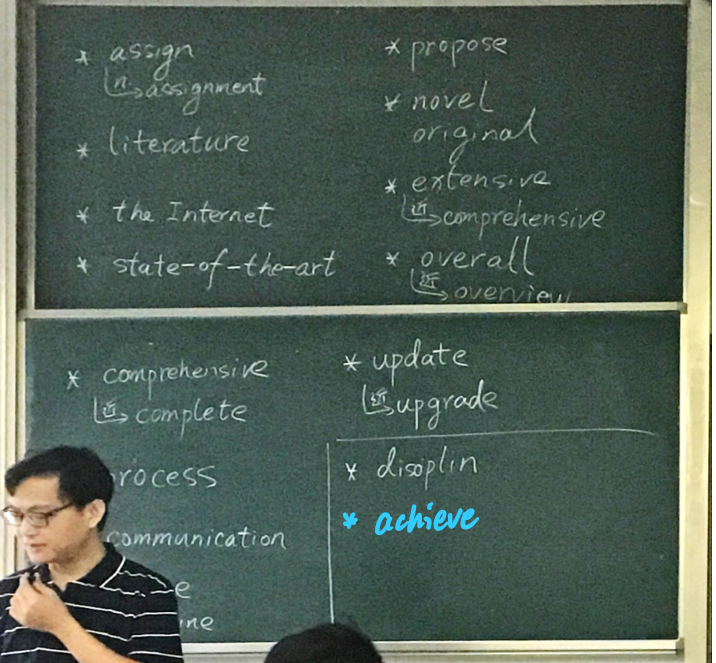 * assign
n. assignment
* literature
* the Internet
* state-of-the-art
* propose
* novel
original
* extensive
近 comprehensive
* overall
近 overview
* comprehensive
近 complete
rocess
communication
e
ine
* update
近 upgrade
* disciplin
* achieve